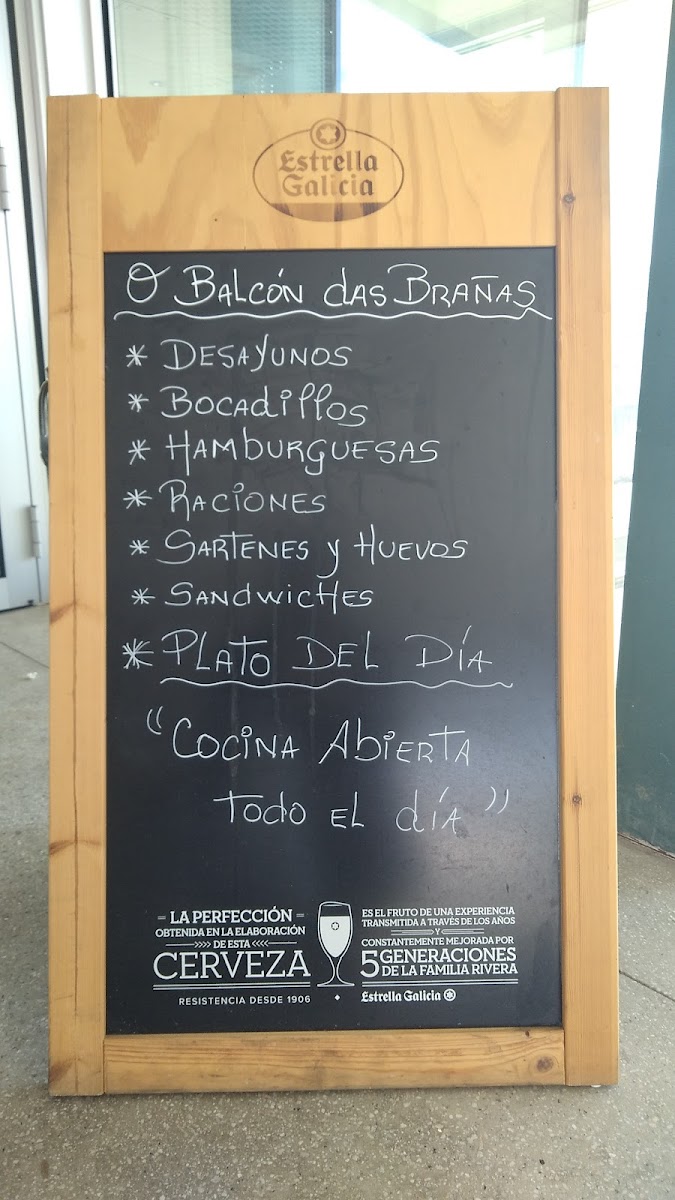 Estrella
Galicia
O BALCÓN DAS BRAÑAS
* DESAYUNOS
* BOCADILLOS
* HAMBURGUESAS
* RACIONES
* SARTENES Y HUEVOS
* SANDWICHES
* PLATO DEL DÍA
"COCINA ABIERTA
TODO EL DÍA"
LA PERFECCIÓN
OBTENIDA EN LA ELABORACIÓN
DE ESTA
CERVEZA
RESISTENCIA DESDE 1906
ES EL FRUTO DE UNA EXPERIENCIA
TRANSMITIDA A TRAVÉS DE LOS AÑOS
Y
CONSTANTEMENTE MEJORADA POR
5 GENERACIONES
DE LA FAMILIA RIVERA
Estrella Galicia